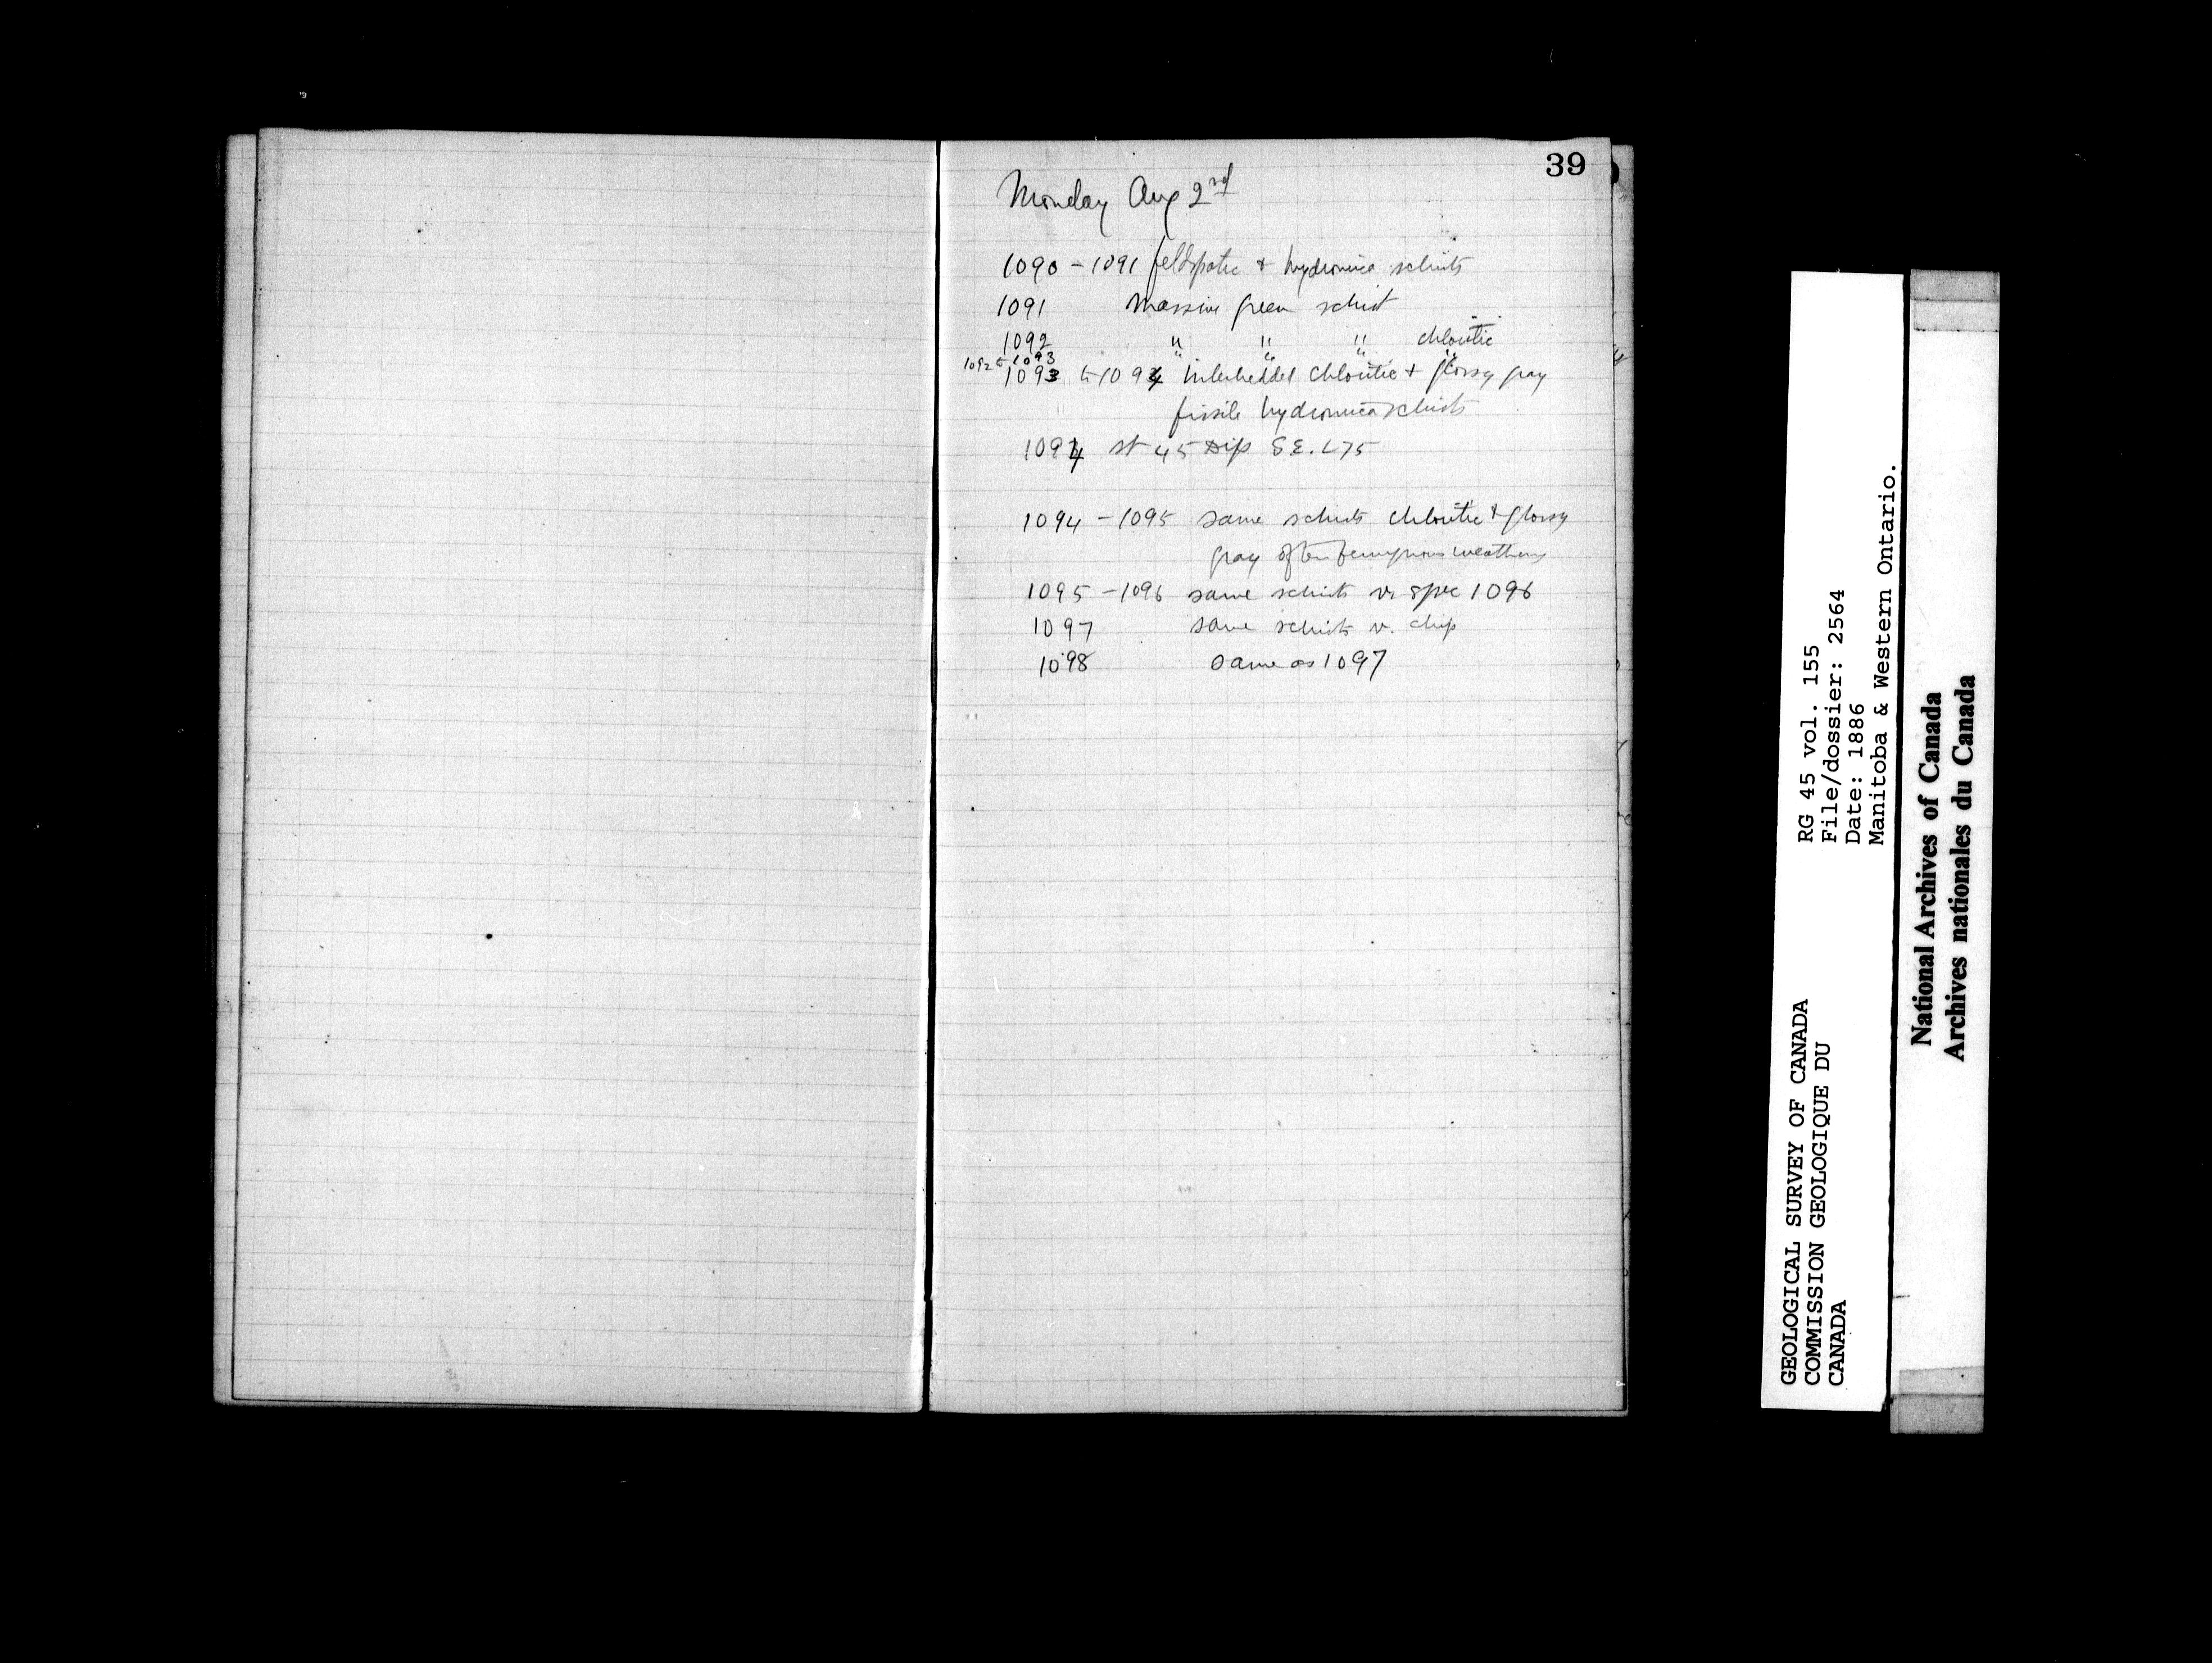 39
Monday Aug 2nd
1090 - 1091 feldspatic & hydromica schists
1091 Massive green schist
1092 " " " chloritic
1092 to 1093 " " " "
1093 to 1094 interbedded chloritic & glossy gray
fissile hydromica schists
1094 st 45 Dip SE. L75
1094 - 1095 same schists chloritic & glossy
gray often ferruginous weathering
1095 - 1096 same schists v. spec 1096
1097 same schists v. chip
1098 same as 1097
GEOLOGICAL SURVEY OF CANADA
COMMISSION GEOLOGIQUE DU
CANADA
RG 45 vol. 155
File/dossier: 2564
Date: 1886
Manitoba & Western Ontario.
National Archives of Canada
Archives nationales du Canada